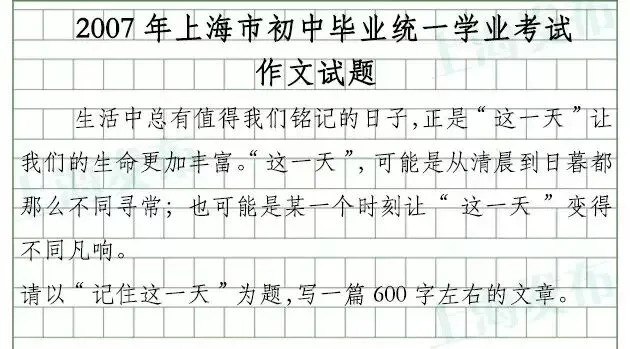 2007年上海市初中毕业统一学业考试
作文试题
生活中总有值得我们铭记的日子,正是“这一天”让
我们的生命更加丰富。“这一天”,可能是从清晨到日暮都
那么不同寻常；也可能是某一个时刻让“这一天”变得
不同凡响。
请以“记住这一天”为题,写一篇600字左右的文章。
上海发布
上海发布
上海发布